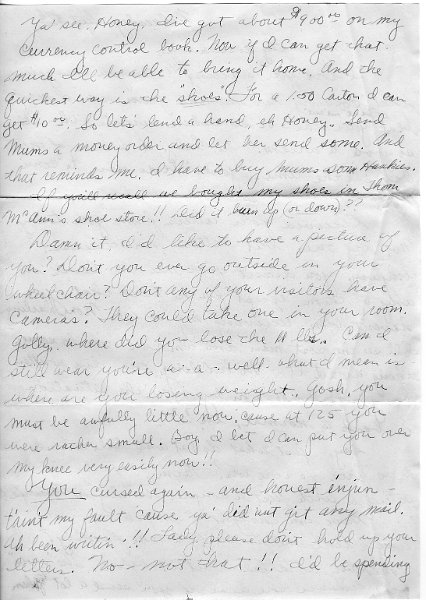 Ya' see, Honey, I've got about $900.00 on my
currency control book. Now if I can get that
much I'll be able to bring it home. And the
quickest way is the "shoes". For a 1.00 Carton I can
get $10.00. So lets' lend a hand, eh Honey. Send
Mums a money order and let her send some. And
that reminds me, I have to buy Mums some Hankies.
If you'll recall we bought my shoes in Thom
McAnn's shoe store!! Did it burn up (or down)?!
Damn it, I'd like to have a picture of
you? Don't you ever go outside in your
wheelchair? Don't any of your visitors have
cameras? They could take one in your room.
Golly, where did you lose the 11 lbs. Can I
still wear you're a-a- well what I mean is
where are you losing weight. Gosh, you
must be awfully little now, cause at 125 you
were rather small. Boy I bet I can put you over
my knee very easily now!!
You cursed again - and honest injun -
thint my fault cause ya' did nut git any mail.
Ah been writin'!! Lady please don't hold up your
letters. No - not that!! I'd be spending